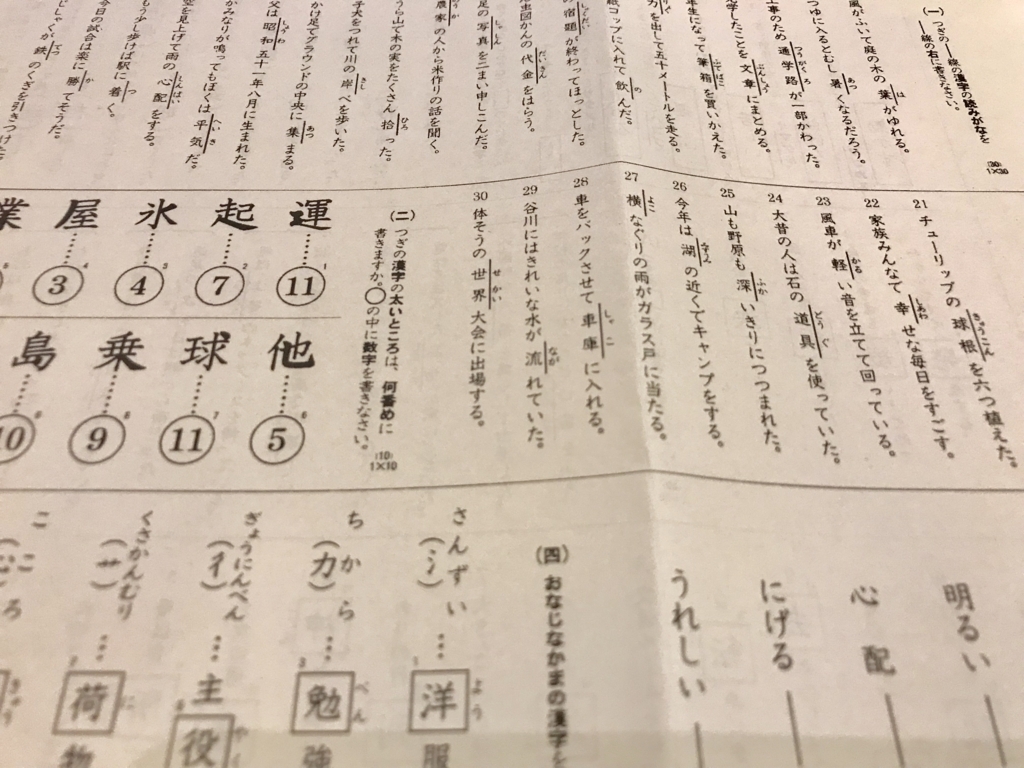 (一) つぎの──線の漢字の読みがなを
──線の右に書きなさい。
(30) 1×30
風がふいて庭の木の葉がゆれる。 は
つゆに入るとむし暑くなるだろう。 あつ
事のため通学路が一部かわった。 つうがくろ
学したことを文章にまとめる。 ぶんしょう
年生になって筆箱を買いかえた。 ふでばこ
力を出して五十メートルを走る。
紙コップに入れて飲んだ。 の
の宿題が終わってほっとした。 しゅくだい
出図かんの代金をはらう。 だいきん
足の写真を二まい申しこんだ。 しゃしん
農家の人から米作りの話を聞く。 のうか
うら山で木の実をたくさん拾った。 ひろ
子犬をつれて川の岸べを歩いた。 きし
かけ足でグラウンドの中央に集まる。 あつ
父は昭和五十一年八月に生まれた。 しょうわ
かみなりが鳴ってもぼくは平気だ。 へいき
空を見上げて雨の心配をする。 しんぱい
もう少し歩けば駅に着く。 つ
今日の試合は楽に勝てそうだ。 か
じしゃくが鉄のくぎを引きつけた てつ
21 チューリップの球根を六つ植えた。 きゅうこん
22 家族みんなで幸せな毎日をすごす。 しあわ
23 風車が軽い音を立てて回っている。 かる
24 大昔の人は石の道具を使っていた。 どうぐ
25 山も野原も深いきりにつつまれた。 ふか
26 今年は湖の近くでキャンプをする。
27 横なぐりの雨がガラス戸に当たる。 よこ
28 車をバックさせて車庫に入れる。 しゃこ
29 谷川にはきれいな水が流れていた。 なが
30 体そうの世界大会に出場する。 せかい
(二) つぎの漢字の太いところは、何番めに
書きますか。○の中に数字を書きなさい。
(10) 1×10
運……1 ⑪
起……2 ⑦
氷……3 ④
屋……4 ③
業
他……6 ⑤
球……7 ⑪
乗……8 ⑨
島……9 ⑩
明るい
心配
にげる
うれしい
(四) おなじなかまの漢字を
さんずい (氵)…1 洋服 よう
ちから (力)…3 勉強 べん
ぎょうにんべん (彳)…主役 やく
くさかんむり (艹)…荷物 に
こころ